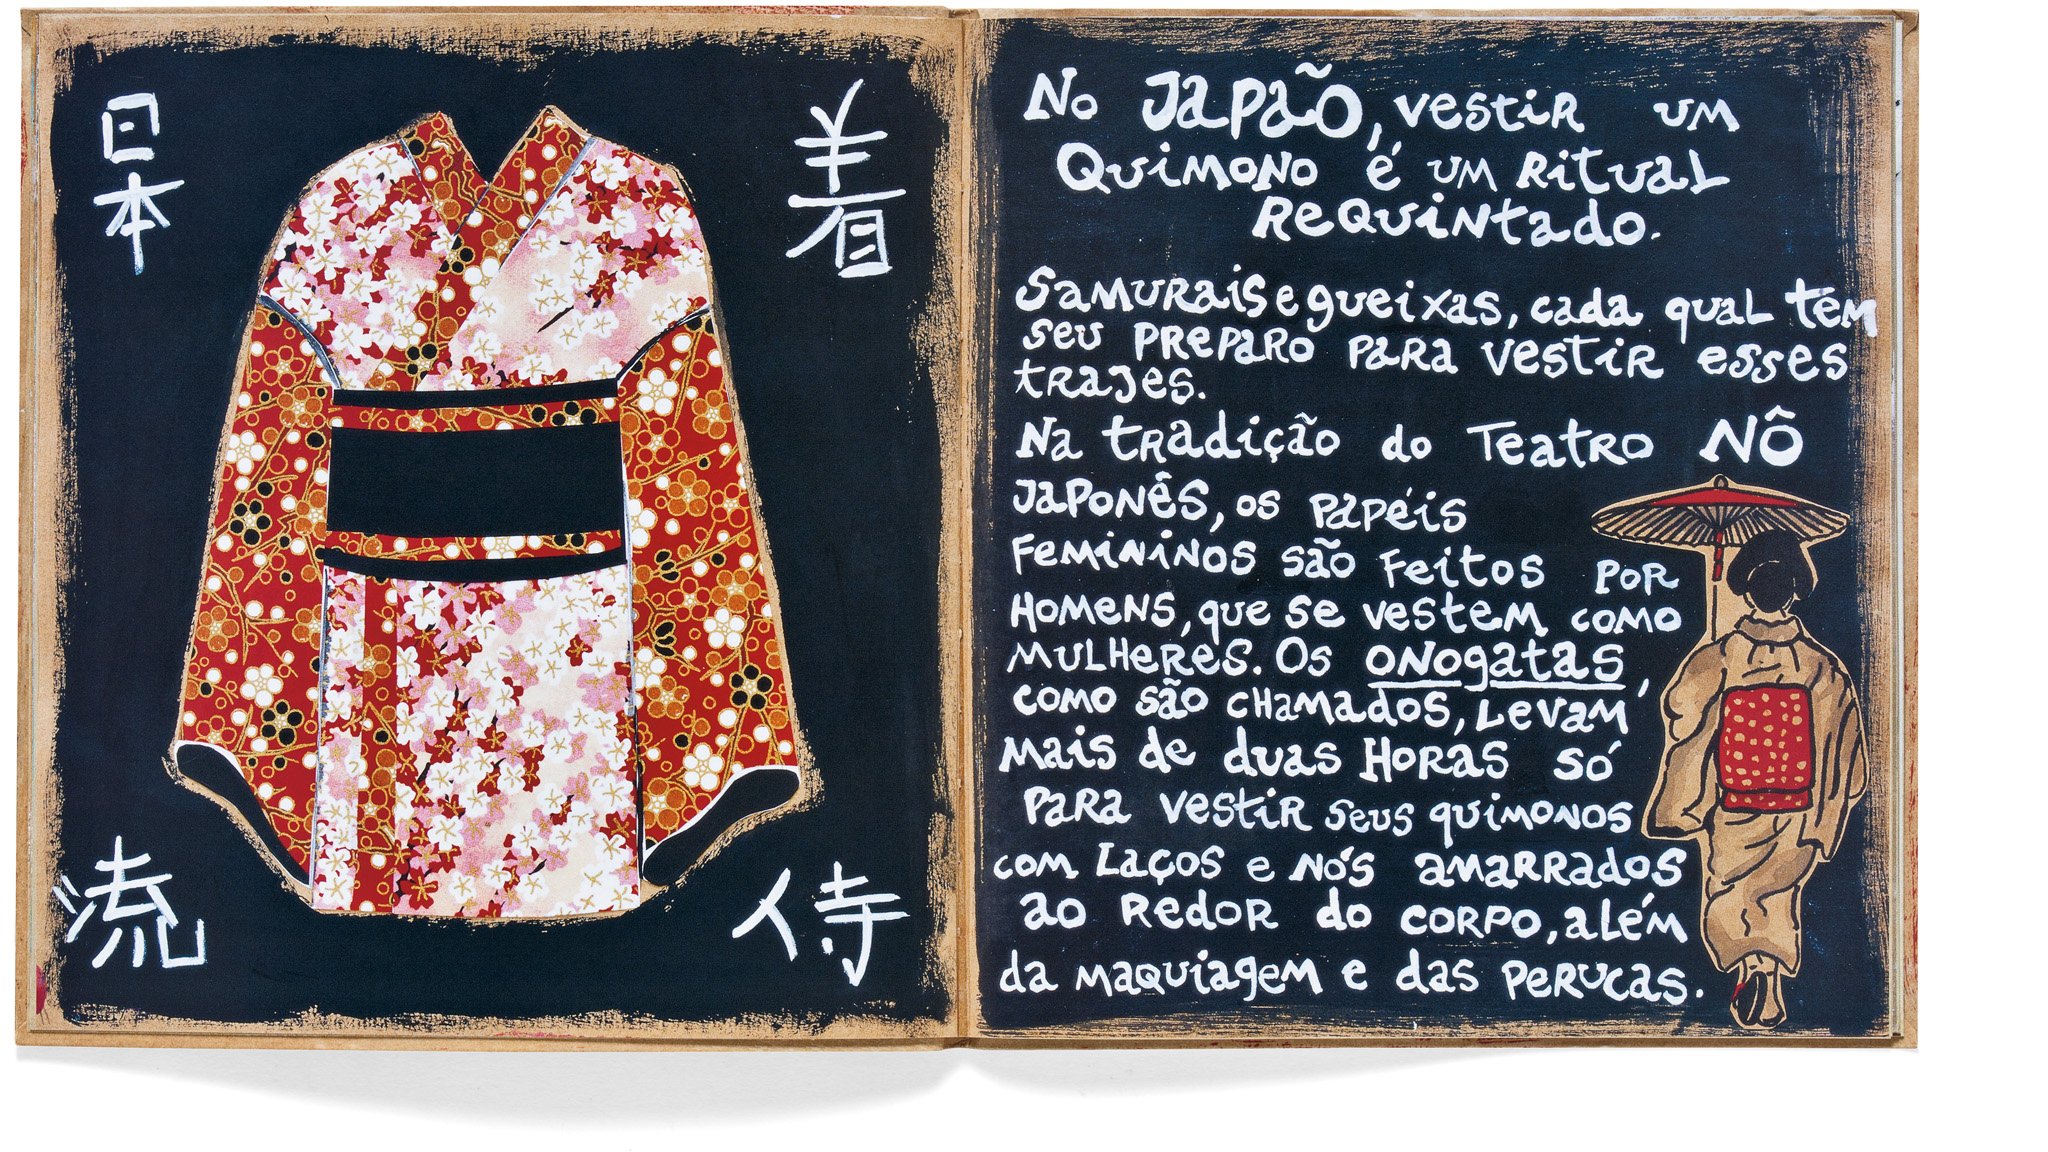 日本
着
流
侍
No Japão, vestir um
Quimono é um ritual
requintado.
Samurais e gueixas, cada qual têm
seu preparo para vestir esses
trajes.
Na tradição do Teatro NÔ
japonês, os papéis
femininos são feitos por
homens, que se vestem como
mulheres. Os onogatas,
como são chamados, levam
mais de duas horas só
para vestir seus quimonos
com laços e nós amarrados
ao redor do corpo, além
da maquiagem e das perucas.